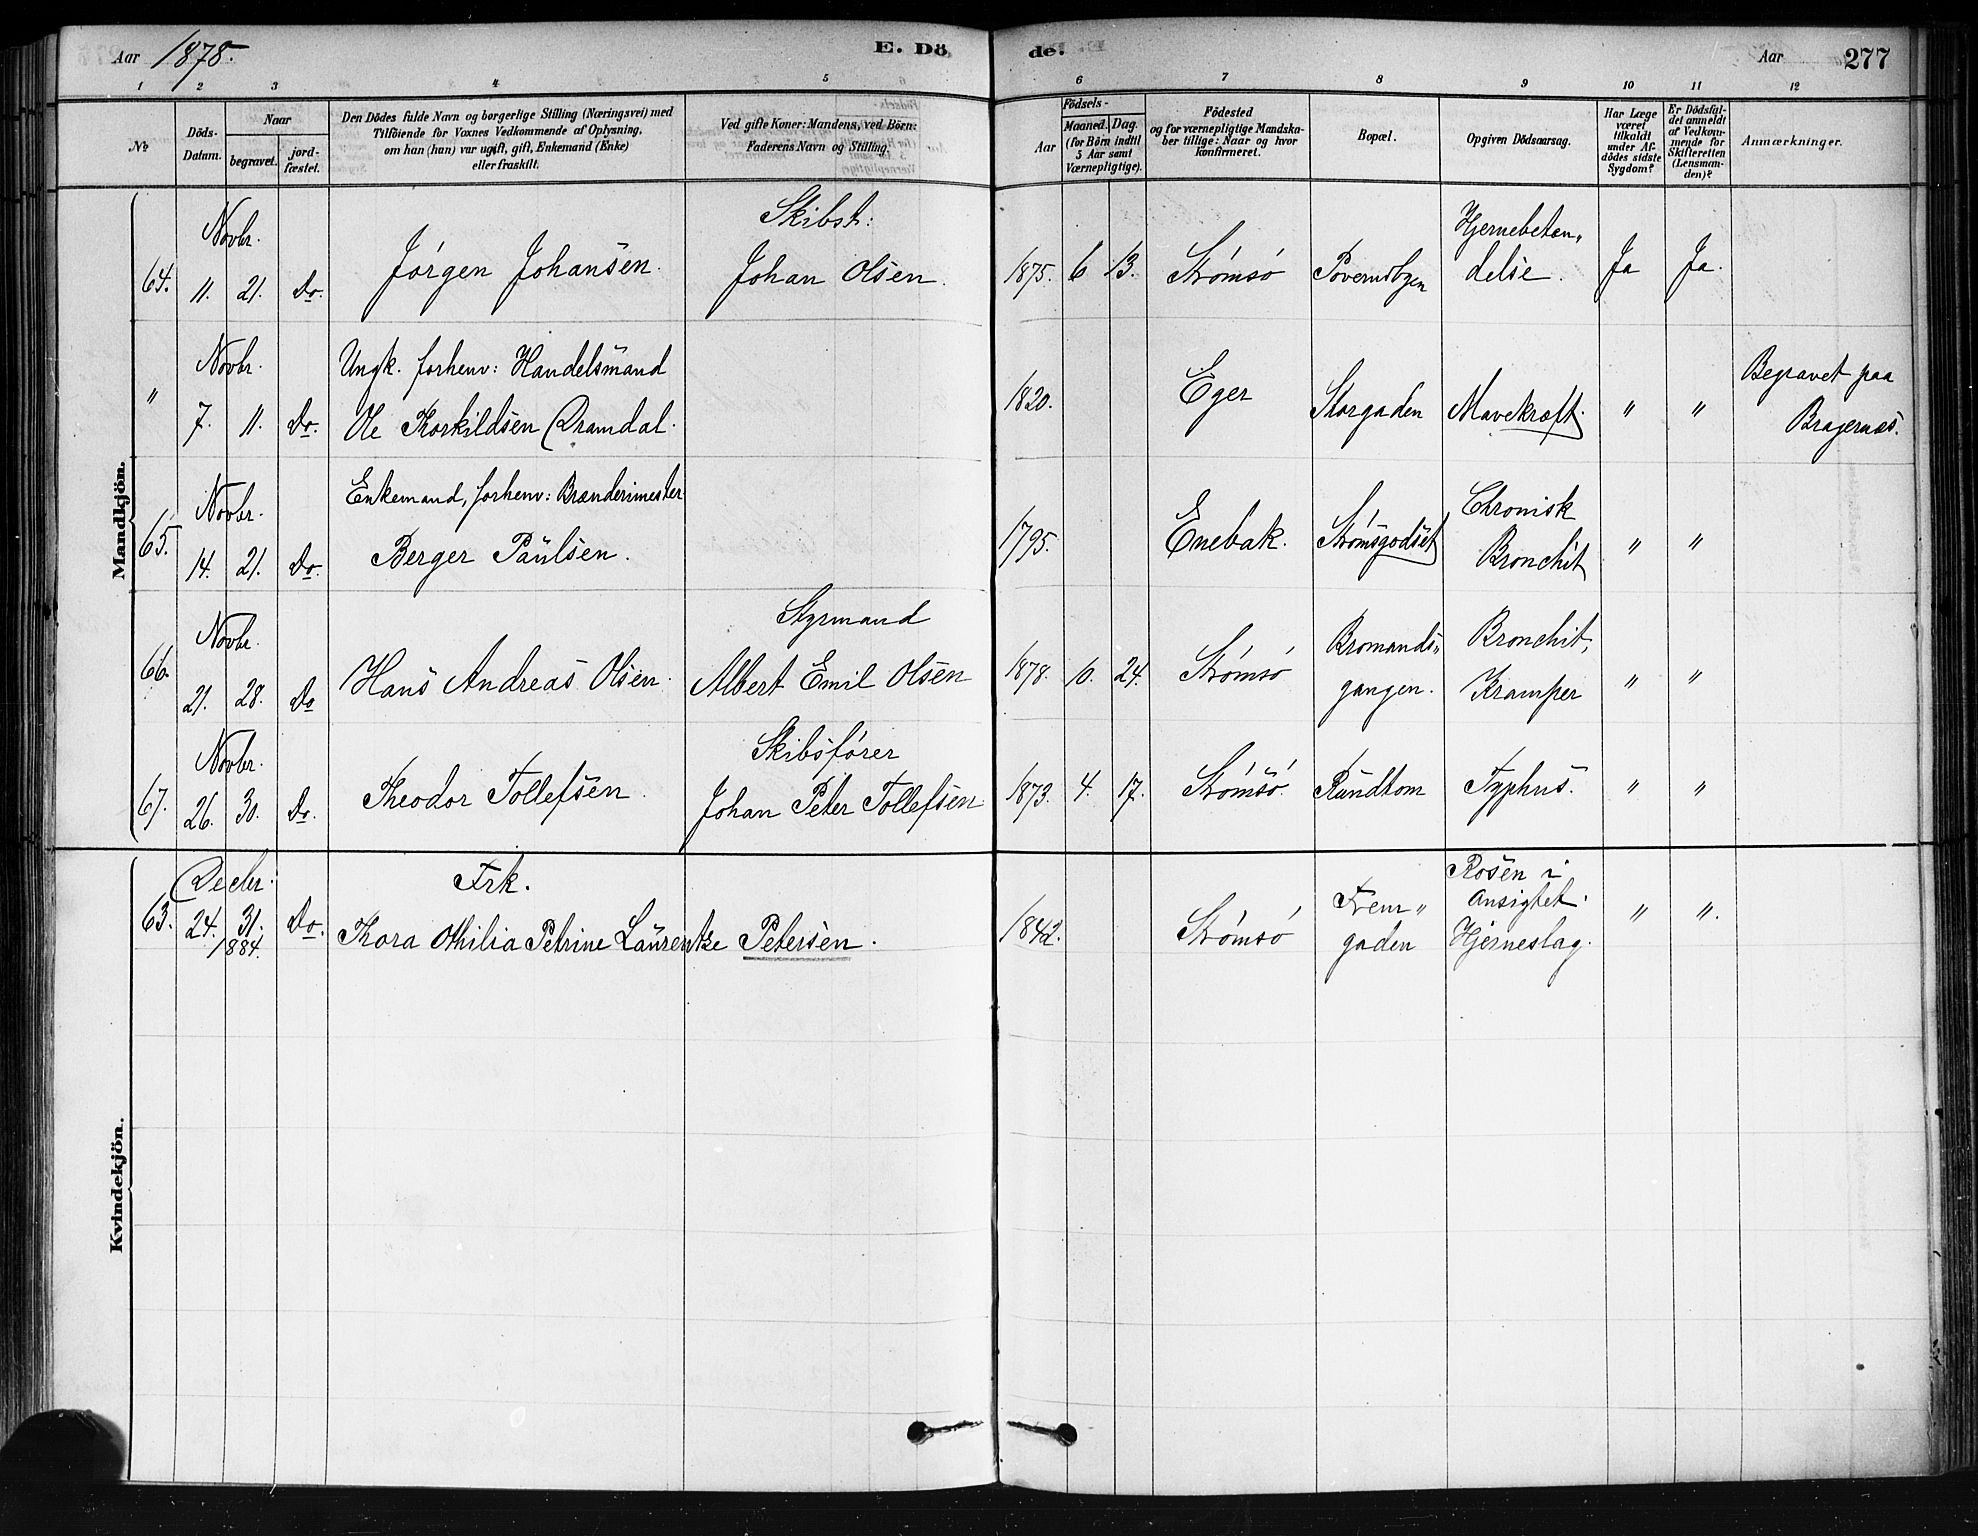 Aar 1878.
E. Dö
de.
Aar
277
1 2 3 4 5 6 7 8 9 10 11 12
№
Döds-
Datum.
Naar
begravet.
jord-
fæstet.
Den Dödes fulde Navn og borgerlige Stilling (Næringsvei) med
Tilföiende for Voxnes Vedkommende af Oplysning,
om han (hun) var ugift, gift, Enkemand (Enke)
eller fraskilt.
Ved gifte Koner: Mandens, ved Börn:
Faderens Navn og Stilling.
Födsels-
Aar
Maaned. Dag.
(for Börn indtil
5 Aar samt
Værnepligtige).
Födested
og for værnepligtige Mandska-
ber tillige: Naar og hvor
konfirmeret.
Bopæl.
Opgiven Dödsaarsag.
Har Læge
været
tilkaldt
under Af-
dödes sidste
Sygdom?
Er Dödsfal-
det anmeldt
af Vedkom-
mende for
Skifteretten
(Lensman-
den)?
Anmærkninger.
Mandkjön.
Novbr.
64. 11. 21. Do.
Jørgen Johansen.
Skibst:
Johan Olsen.
1875. 6 13. Strømsø
Povernsbyen
Hjernebetæn„
delse.
Ja Ja.
Novbr.
" 7. 11. Do.
Ungk. forhenv: Handelsmand
Ole Thorkildsen Dramdal.
1820. Eger Storgaden Mavekræft. " "
Begravet paa
Bragernæs.
Novbr.
65. 14. 21. Do.
Enkemand, forhenv: Brænderimester
Berger Paulsen.
1795. Enebak. Strømsgodset
Chronisk
Bronchit
" "
Novbr.
66. 21. 28. Do
Hans Andreas Olsen.
Styrmand
Albert Emil Olsen
1878. 10. 24. Strømsø
Bromands„
gangen.
Bronchit,
Kramper
" "
Novbr.
67. 26. 30. Do.
Theodor Tollefsen.
Skibsfører
Johan Peter Tollefsen
1873. 4. 17. Strømsø. Rundtom Typhus. " "
Kvindekjön.
Decbr.
63. 24. 31. Do.
1884.
Frk.
Thora Othilia Petrine Laurentze Petersen.
1842. Strømsø
Frem„
gaden
Rosen i
Ansigtet.
Hjerneslag.
" ".